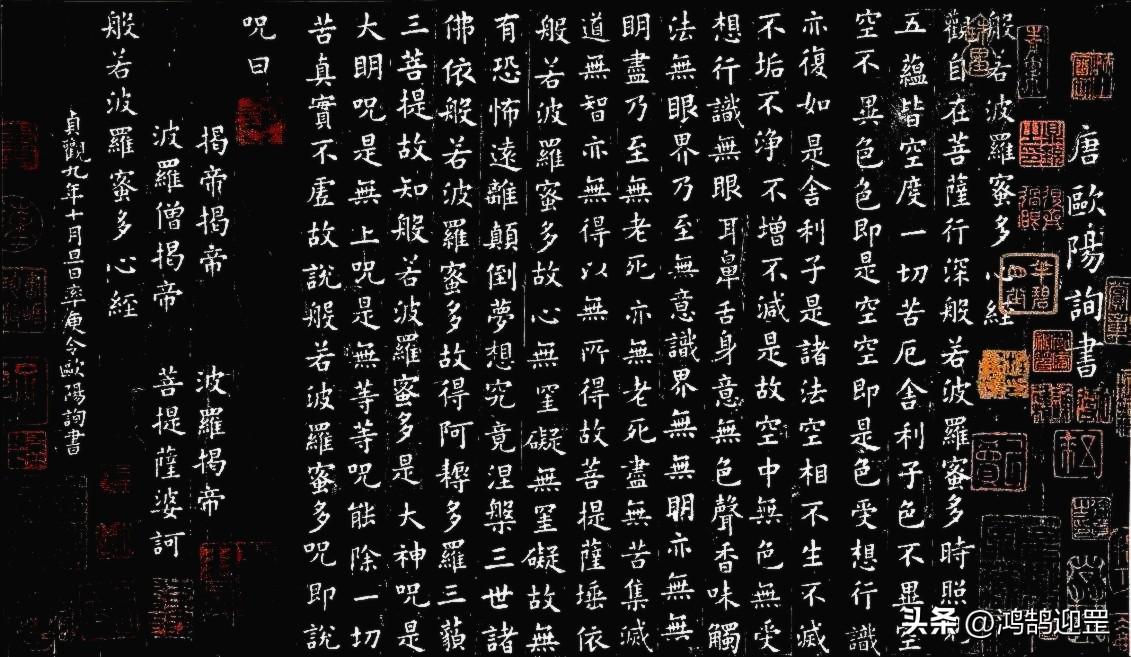 唐歐陽詢書
般若波羅蜜多心経
觀自在菩薩行深般若波羅蜜多時照
五蘊皆空度一切苦厄舎利子色不異空
空不異色色即是空空即是色受想行識
亦復如是舎利子是諸法空相不生不滅
不垢不净不增不減是故空中無色無受
想行識無眼耳鼻舌身意無色聲香味觸
法無眼界乃至無意識界無無明亦無無
明盡乃至無老死亦無老死盡無苦集滅
道無智亦無得以無所得故菩提薩埵依
般若波羅蜜多故心無罣礙無罣礙故無
有恐怖遠離顛倒夢想究竟涅槃三世諸
佛依般若波羅蜜多故得阿耨多羅三藐
三菩提故知般若波羅蜜多是大神呪是
大明呪是無上呪是無等等呪能除一切
苦真實不虛故說般若波羅蜜多呪即說
呪曰
揭帝揭帝 波羅揭帝
波羅僧揭帝 菩提薩婆訶
般若波羅蜜多心経
貞觀九年十月旦日率更令歐陽詢書
头条@鸿鹄迎罡